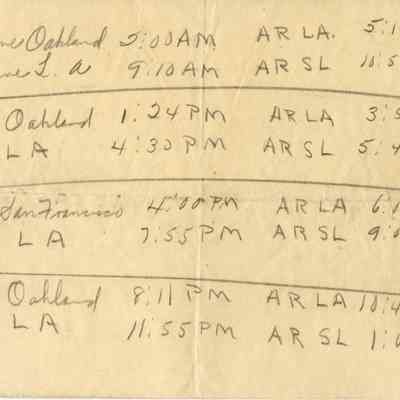 Oakland 2:00AM AR LA. 5:1
L. A 9:10AM AR SL 10:5
Oakland 1:24PM AR LA 3:5
LA 4:30PM AR SL 5:4
San Francisco 4:00PM AR LA 6:1
LA 7:55PM AR SL 9:0
Oakland 8:11PM AR LA 10:4
LA 11:55PM AR SL 1:0